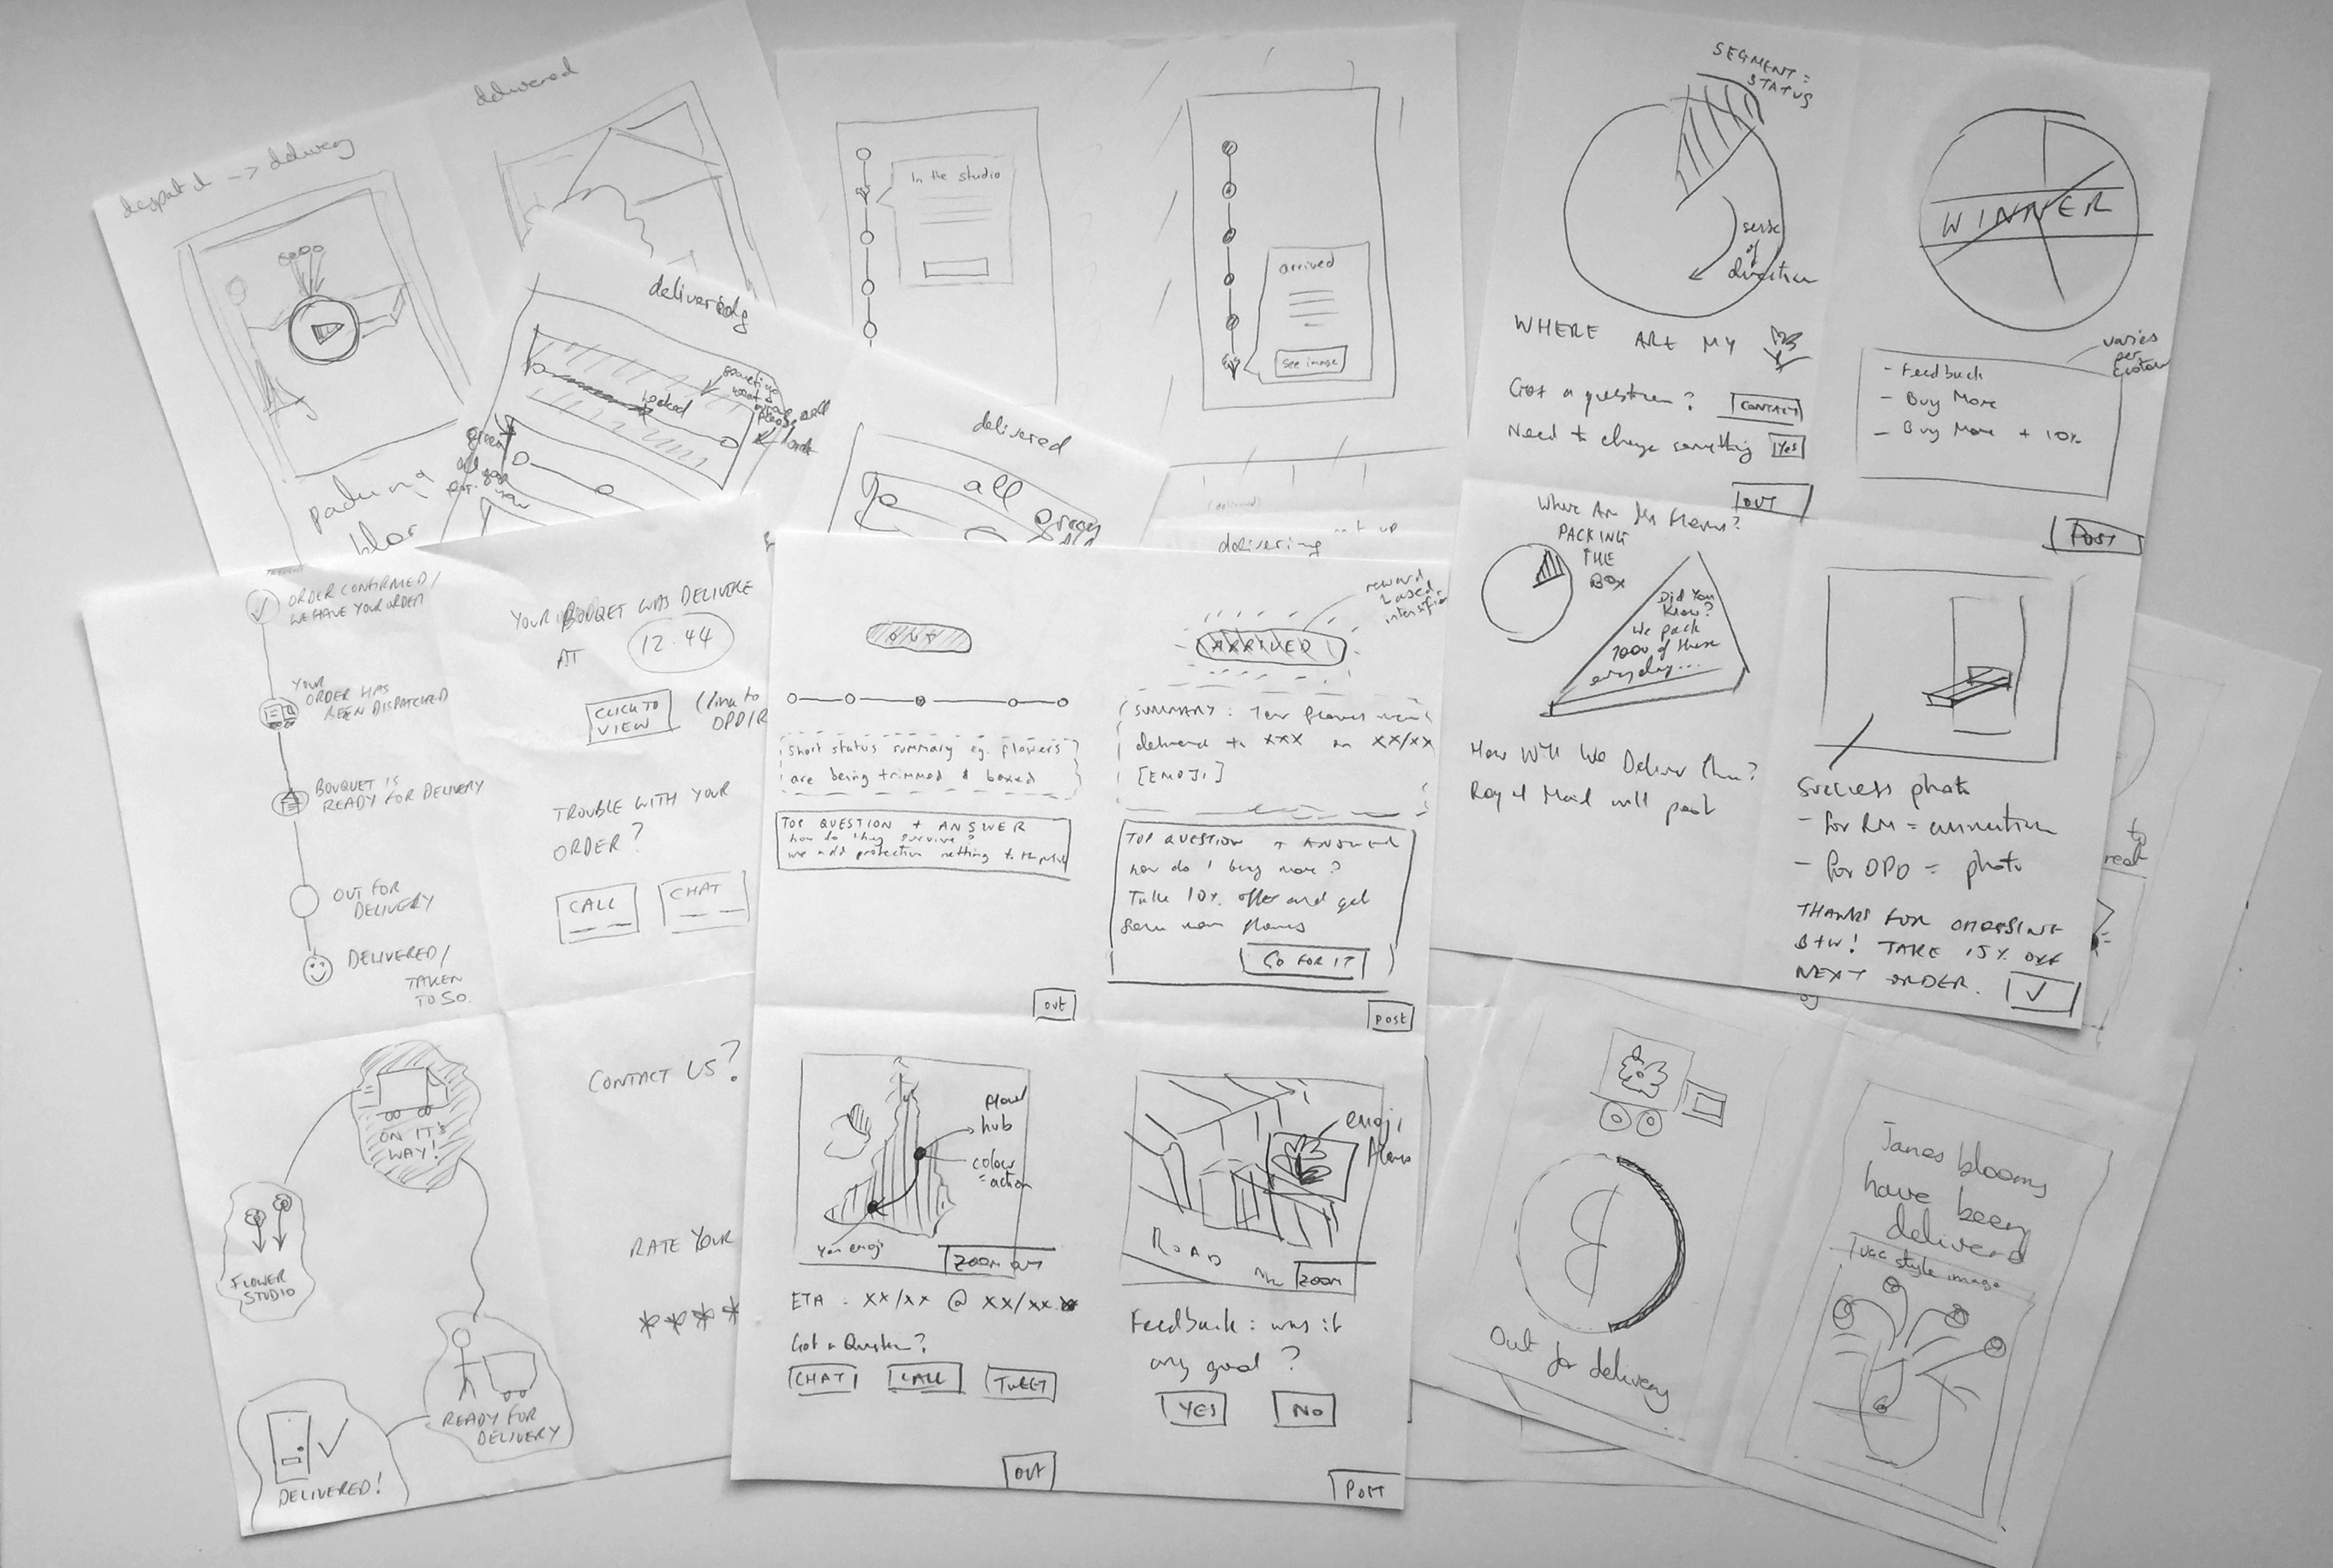 -> delivery
delivered
packing
delivering
locked
green
delivered
all
green
In the studio
arrived
see image
SEGMENT =
STATUS
sense
of
direction
WHERE ARE MY
Got a question? CONTACT
Need to change something YES
OUT
WINNER
varies
per
- Feedback
- Buy More
- Buy More + 10%
POST
Where Are My Flowers?
PACKING
THE
BOX
Did You
Know?
We pack
7000 of these
everyday...
How Will We Deliver Them?
Royal Mail will post
Success photo
- for RM = animation
- for DPD = photo
THANKS FOR CHOOSING
B+W! TAKE 15% OFF
NEXT ORDER.
ORDER CONFIRMED/
WE HAVE YOUR ORDER
YOUR
ORDER HAS
BEEN DISPATCHED
BOUQUET IS
READY FOR DELIVERY
OUT FOR
DELIVERY
DELIVERED/
TAKEN
TO SO.
YOUR BOUQUET WAS DELIVERE
AT 12.44
CLICK TO
VIEW
(link to
DPD/R
TROUBLE WITH YOUR
ORDER?
CALL CHAT
delivering
reward
based
ARRIVED
Short status summary eg. flowers
are being trimmed & boxed
TOP QUESTION + ANSWER
how do they survive?
we add protective netting to the
OUT
SUMMARY: Your flowers were
delivered to XXX on XX/XX
[EMOJI]
TOP QUESTION + ANSWER
how do I buy more?
Take 10% offer and get
some more flowers
GO FOR IT
POST
ON IT'S
WAY!
FLOWER
STUDIO
READY FOR
DELIVERY
DELIVERED!
CONTACT US?
RATE YOUR
****
flower
hub
colour
= action
You emoji
ZOOM OUT
ETA: XX/XX @ XX/XX
Got a Question?
CHAT CALL TWEET
OUT
emoji
flowers
ROAD
ZOOM
Feedback: was it
any good?
YES NO
POST
Out for delivery
Janes blooms
have been
delivered
style image